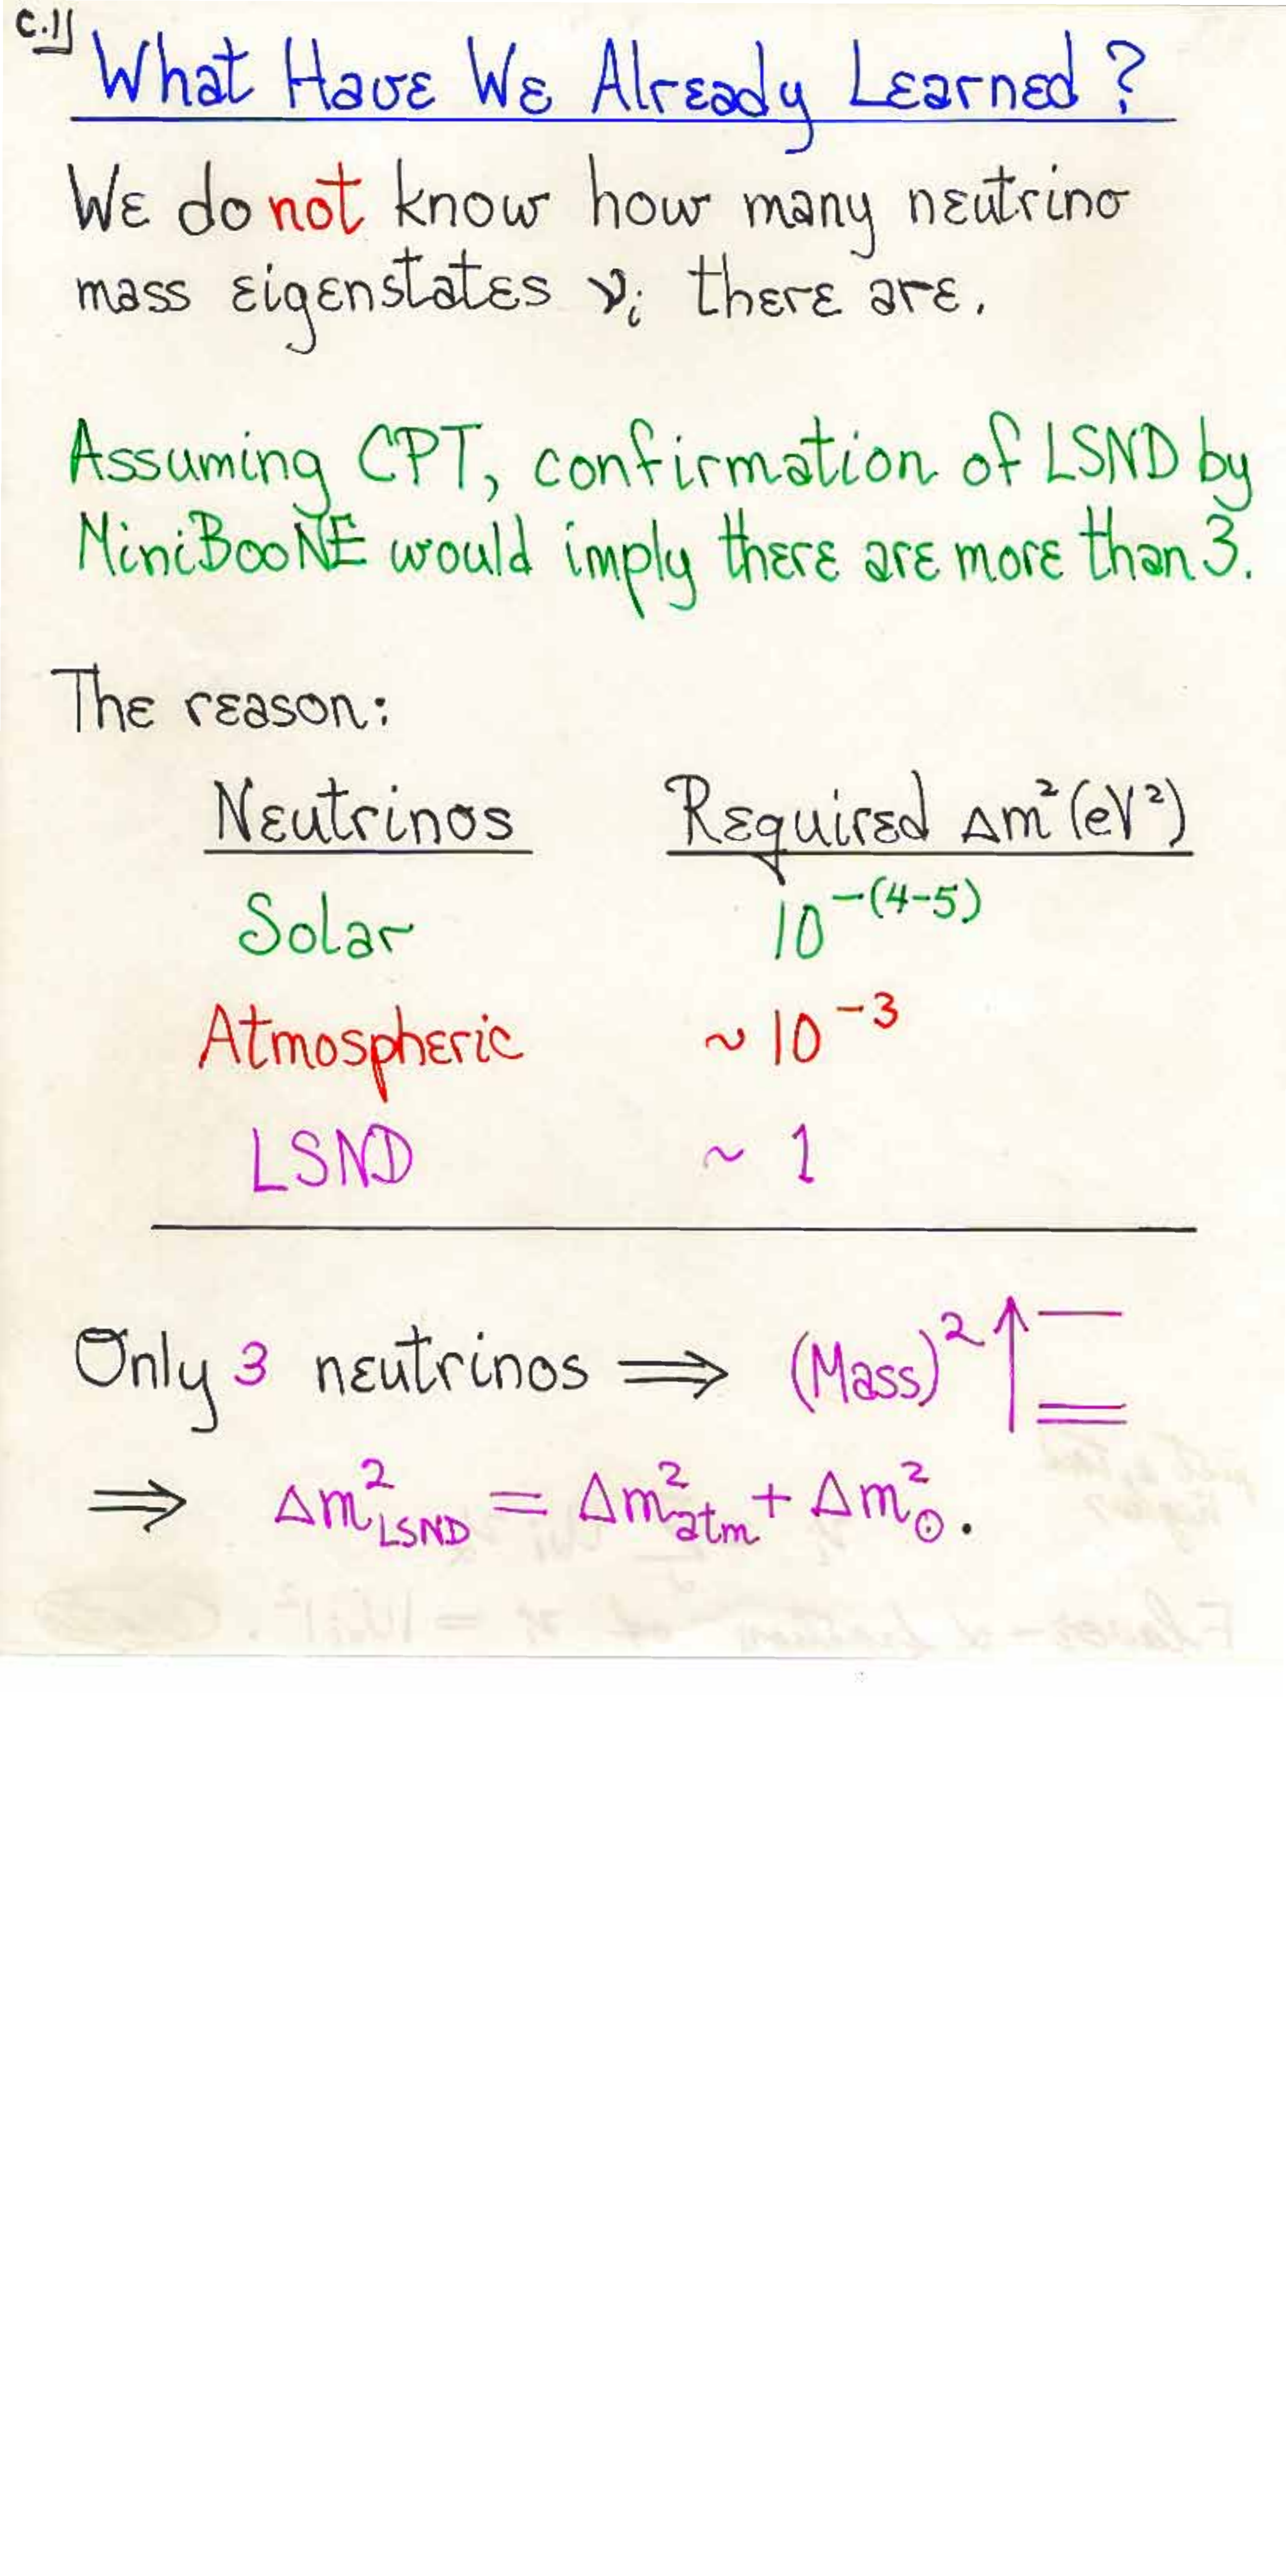 C.1
What Have We Already Learned?
We do not know how many neutrino
mass eigenstates νi there are.
Assuming CPT, confirmation of LSND by
MiniBooNE would imply there are more than 3.
The reason:
Neutrinos Required Δm² (eV²)
Solar 10⁻⁽⁴⁻⁵⁾
Atmospheric ~10⁻³
LSND ~ 1
Only 3 neutrinos ⟹ (Mass)² ↑
⟹ Δm²LSND = Δm²atm + Δm²⊙.